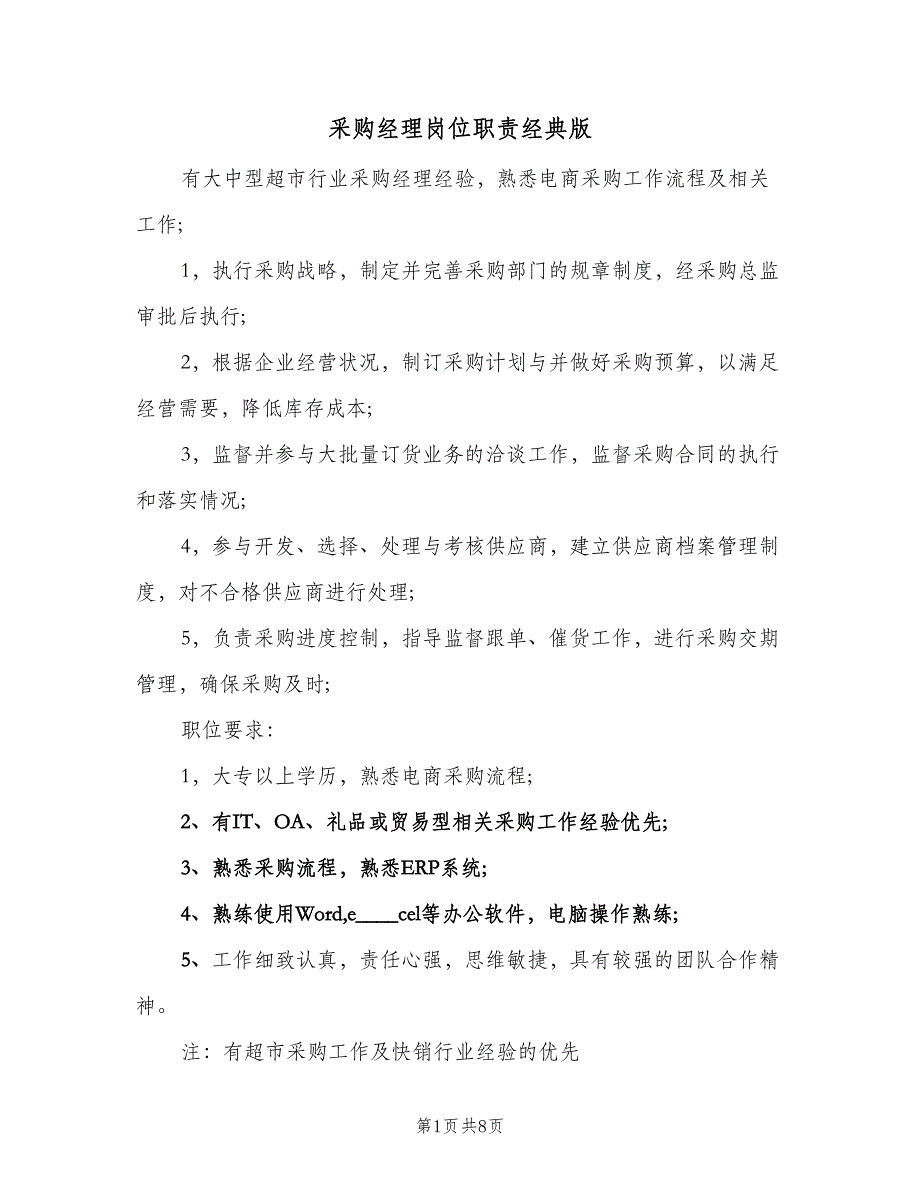 采购经理岗位职责经典版
有大中型超市行业采购经理经验，熟悉电商采购工作流程及相关
工作;
1，执行采购战略，制定并完善采购部门的规章制度，经采购总监
审批后执行;
2，根据企业经营状况，制订采购计划与并做好采购预算，以满足
经营需要，降低库存成本;
3，监督并参与大批量订货业务的洽谈工作，监督采购合同的执行
和落实情况;
4，参与开发、选择、处理与考核供应商，建立供应商档案管理制
度，对不合格供应商进行处理;
5，负责采购进度控制，指导监督跟单、催货工作，进行采购交期
管理，确保采购及时;
职位要求：
1，大专以上学历，熟悉电商采购流程;
2、有IT、OA、礼品或贸易型相关采购工作经验优先;
3、熟悉采购流程，熟悉ERP系统;
4、熟练使用Word,e____cel等办公软件，电脑操作熟练;
5、工作细致认真，责任心强，思维敏捷，具有较强的团队合作精
神。
注：有超市采购工作及快销行业经验的优先
第1页 共8页